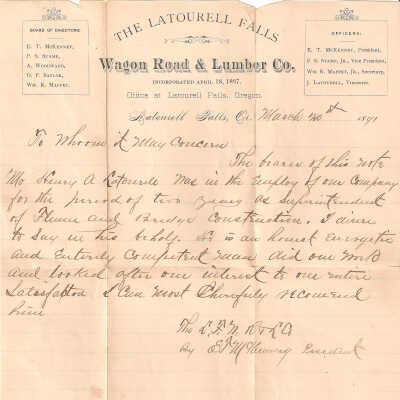 THE LATOURELL FALLS
Wagon Road & Lumber Co.
INCORPORATED APRIL 18, 1887.
Office at Latourell Falls, Oregon.
BOARD OF DIRECTORS:
E. T. McKENNEY,
A. WOODWARD,
WM. R. MAFFET,
OFFICERS:
E. T. McKENNEY, President,
WM. R. MAFFET, Jr., Secretary,
J. LATOURELL, Treasurer.
Latourell Falls, Or. March 1891
To Whoom it May Concern
The bearer of this Note
Mr Henry A Latourelle was in the Employ of our Company
for the period of two years as Superintendent
of Flume and Bridge Construction. I desire
to Say in his behalf. He is an honest Energetic
and Entirely Competent man did our work
and looked after our interest to our entire
Satisfaction I Can most Cheerfully recomend
him
The L. F. W. R & L Co
By E T McKenney President